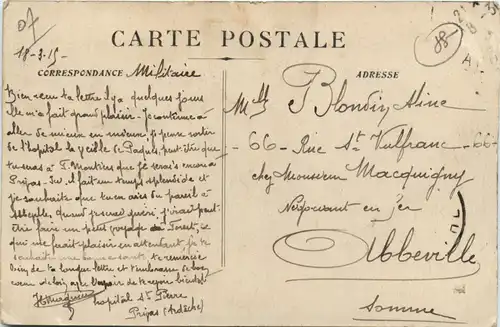 07
18-3-15
CARTE POSTALE
CORRESPONDANCE Militaire
ADRESSE
Bien reçu ta lettre il y a quelques jours
Elle m'a fait grand plaisir. Je continue à
aller de mieux en mieux, je pense sortir
de l'hôpital la veille de Paques, peut-être que
tu seras à que je serais encore à
Privas. Ici, il fait un temps splendide et
je souhaite que tu en aies du pareil à
Abbeville, quand je serai guéri, j'irait peut-
être faire un petit voyage
qui me ferait plaisir en attendant, je te
souhaite une bonne santé. te remercie
bien de ta longue lettre et t'embrasse de bon
cœur de loin, que l'espoir de te voir bientôt
hôpital St Pierre
Privas (Ardèche)
Melle Blondin Aline
-66- Rue St Vulfranc -66-
chez Monsieur Macquigny
Négociant en fer
Abbeville
Somme